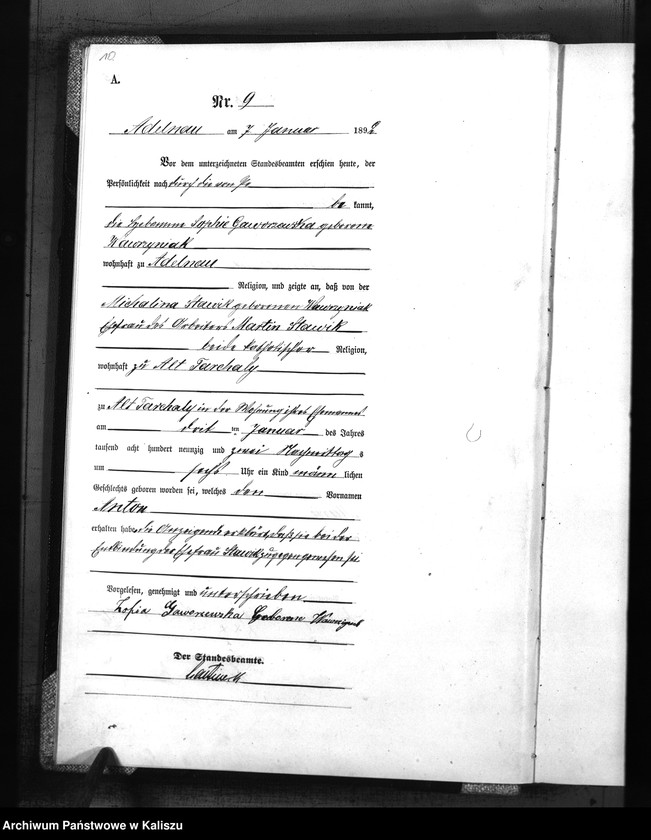 10
A.
Nr. 9
Adelnau am 7 Januar 1892
Vor dem unterzeichneten Standesbeamten erschien heute, der
Persönlichkeit nach durch die von
be kannt,
die Hebamme Sophie Gaworzewska geborene
Wawrzyniak
wohnhaft zu Adelnau
Religion, und zeigte an, daß von der
Michalina Stawik geborenen Wawrzyniak
Ehefrau des Arbeiters Martin Stawik
beide katholischer Religion,
wohnhaft zu Alt Tarchaly
zu Alt Tarchaly in der Wohnung ihres Ehemannes
am drit ten Januar des Jahres
tausend acht hundert neunzig und zwei Nachmittag s
um sechs Uhr ein Kind männ lichen
Geschlechts geboren worden sei, welches den Vornamen
Anton
erhalten habe, die Anzeigende erklärt, daß sie bei der
Entbindung der Ehefrau Stawik zugegen gewesen sei
Vorgelesen, genehmigt und unterschrieben
Zofia Gaworzewska Geborene
Der Standesbeamte.
Archiwum Państwowe w Kaliszu